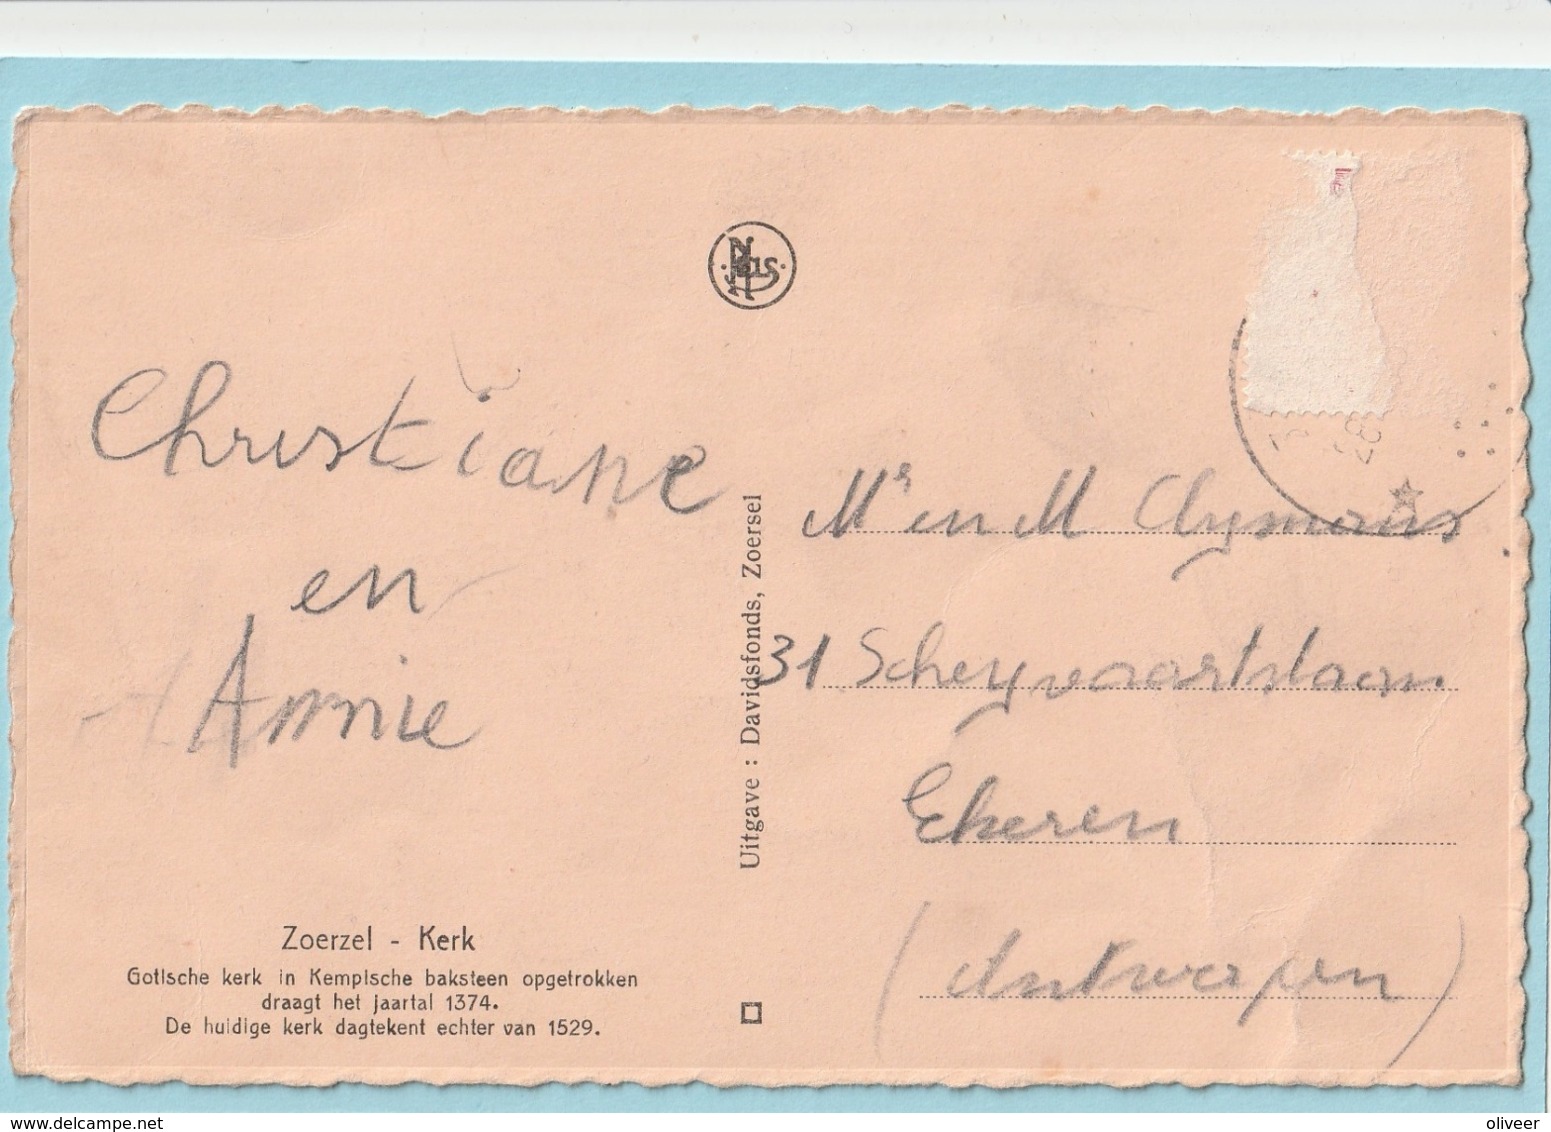 Nels
Christiane
en
Annie
Mr en M Clymans
31 Scheyvaartslaan
Ekeren
(Antwerpen)
Uitgave : Davidsfonds, Zoersel
Zoerzel - Kerk
Gotische kerk in Kempische baksteen opgetrokken
draagt het jaartal 1374.
De huidige kerk dagtekent echter van 1529.
oliveer